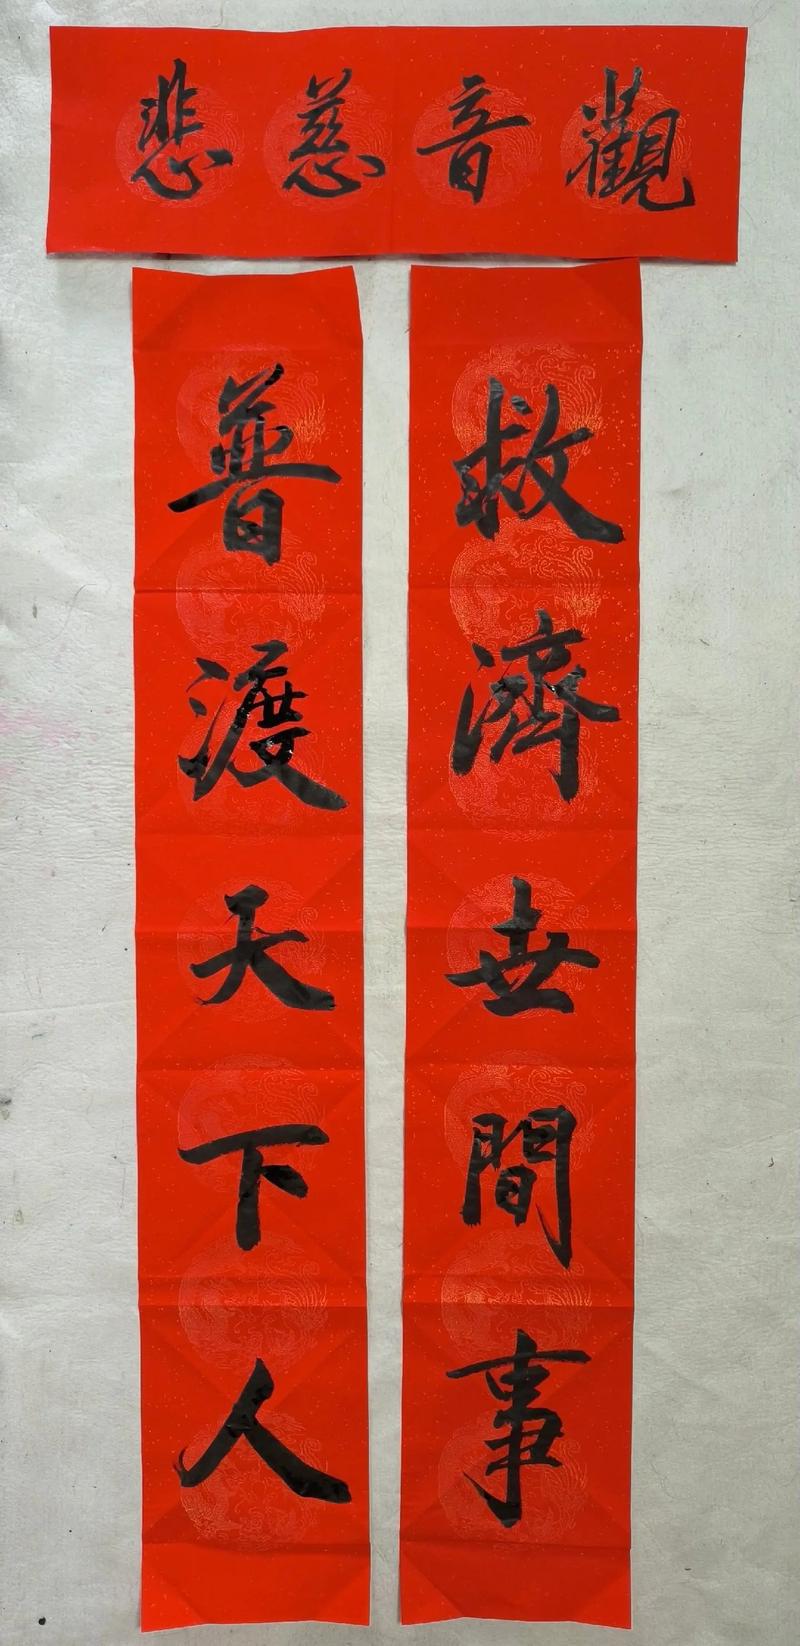 觀音慈悲
救濟世間事
普渡天下人